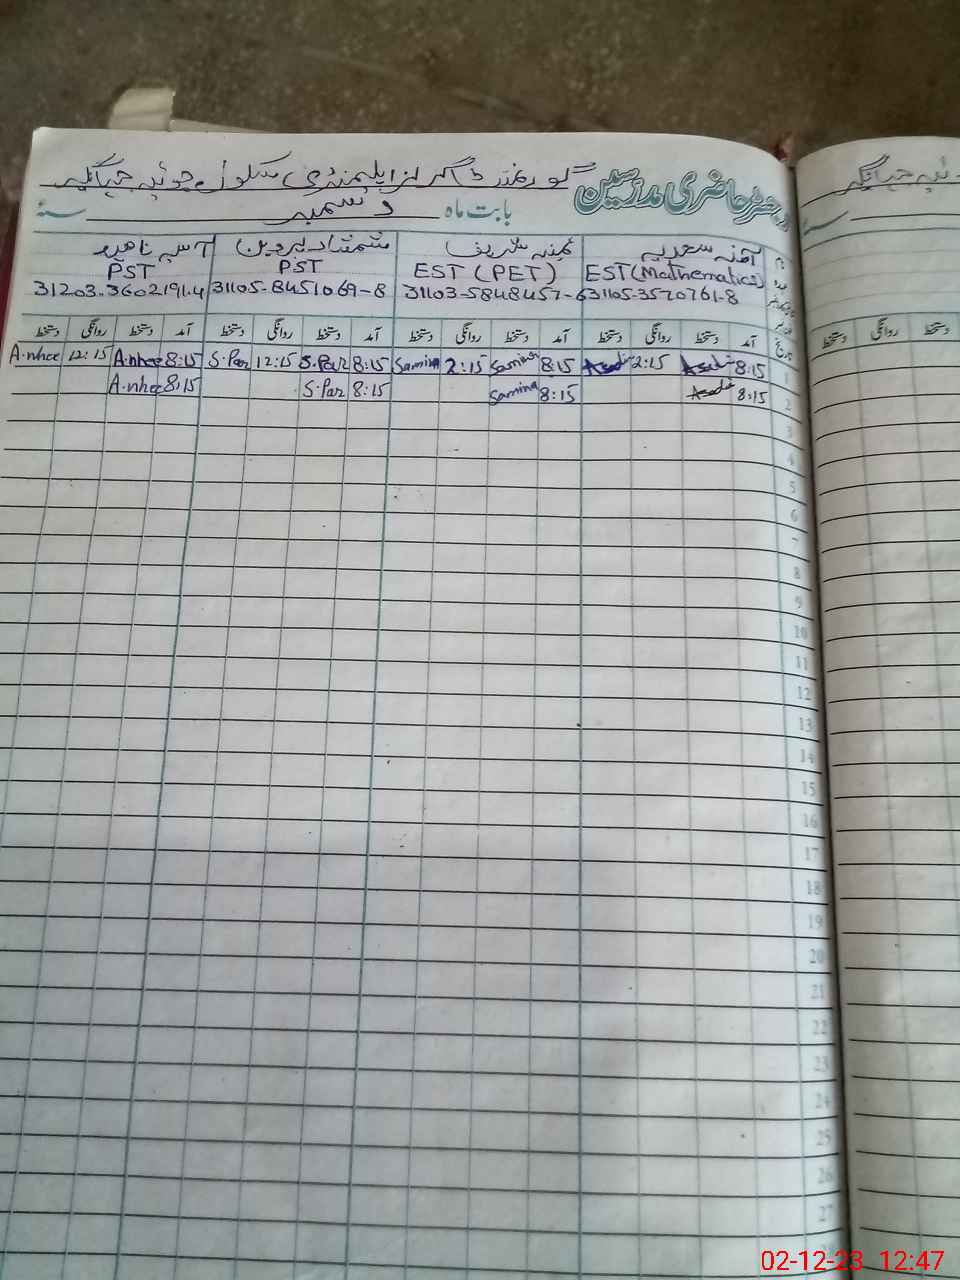 رجسٹر حاضری مدرسین گورنمنٹ گرلز ایلیمنٹری سکول
بابت ماہ دسمبر سنہ
آمنہ سعدیہ ثمینہ شریف شمشاد پروین آسیہ ناہید
EST (Mathematics) EST (PET) PST PST
31105-3570761-8 31103-5848457-6 31105-8451069-8 31203-3602191-4
تاریخ آمد دستخط روانگی دستخط آمد دستخط روانگی دستخط آمد دستخط روانگی دستخط آمد دستخط روانگی دستخط
1 8:15 2:15 8:15 Samina 2:15 Samina 8:15 S.Par 12:15 S.Par 8:15 A.nhee 12:15 A.nhee
2 8:15 8:15 Samina 8:15 S.Par 8:15 A.nhee
3
4
5
6
7
8
9
10
11
12
13
14
15
16
17
18
19
20
21
22
23
24
25
26
27
دستخط روانگی دستخط
سنہ
02-12-23 12:47